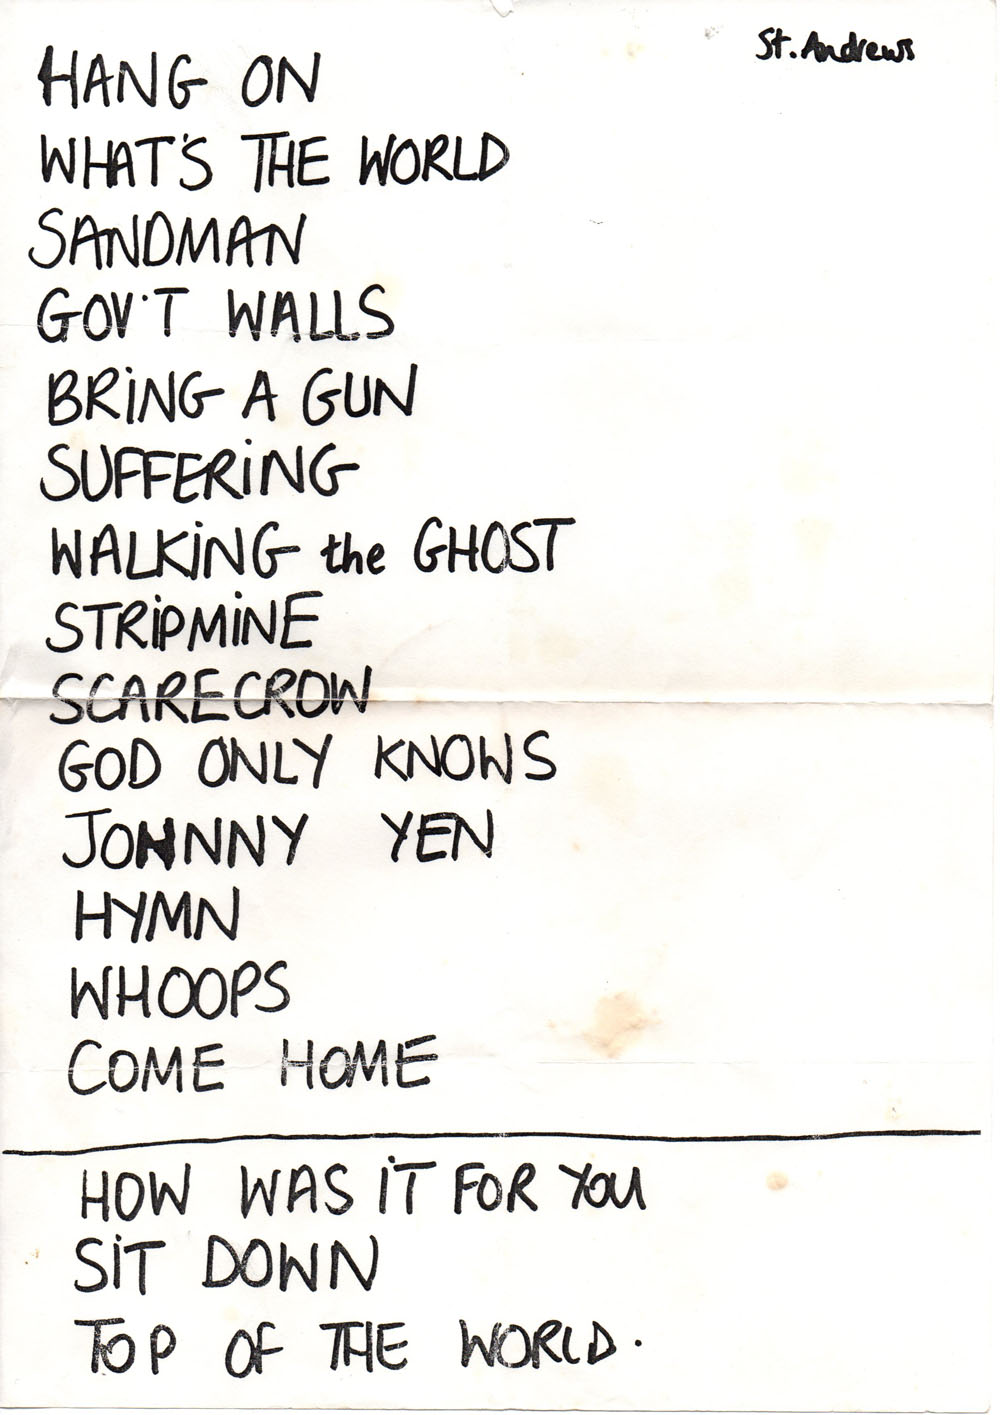 St. Andrews
HANG ON
WHAT'S THE WORLD
SANDMAN
GOV'T WALLS
BRiNG A GUN
SUFFERiNG
WALKiNG the GHOST
STRiPMiNE
SCARECROW
GOD ONLY KNOWS
JOHNNY YEN
HYMN
WHOOPS
COME HOME
HOW WAS iT FOR YOU
SiT DOWN
TOP OF THE WORLD.